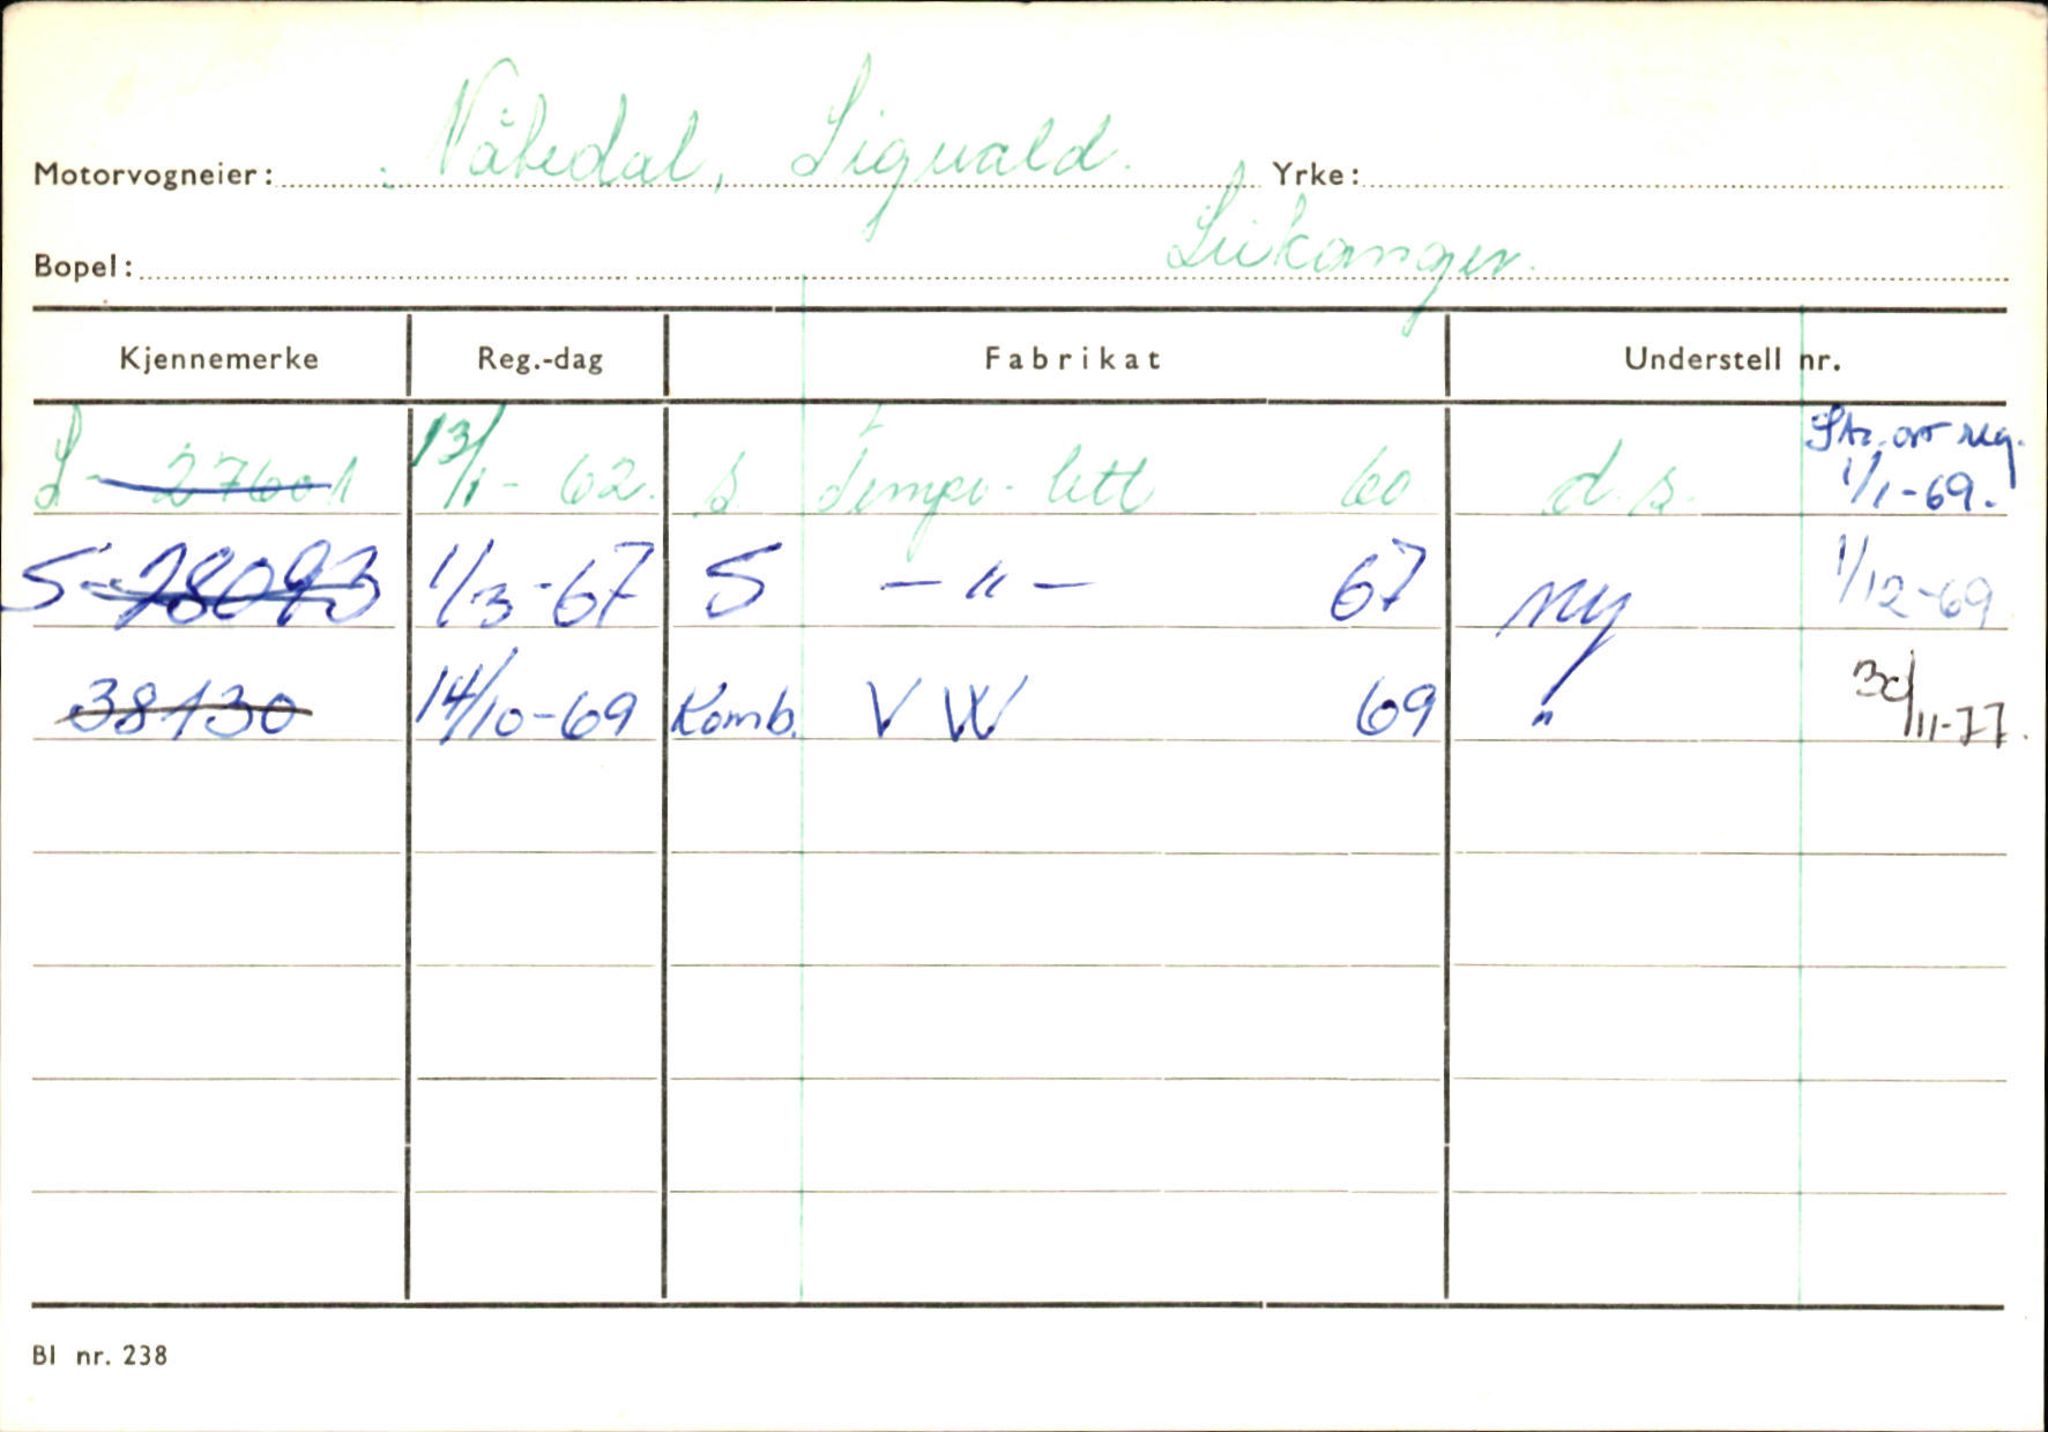 Motorvogneier: Nåbedal, Sigvald. Yrke:
Bopel: Leikanger.
Kjennemerke Reg.-dag Fabrikat Understell nr.
S - 27601 13/1 - 62. s Tempo - lett 60. d.s. Str. av reg. 1/1-69.
S-28093 1/3-67 S — " — 67 ny 1/12-69
38130 14/10-69 Komb. VW 69 " 30/11-77.
Bl nr. 238